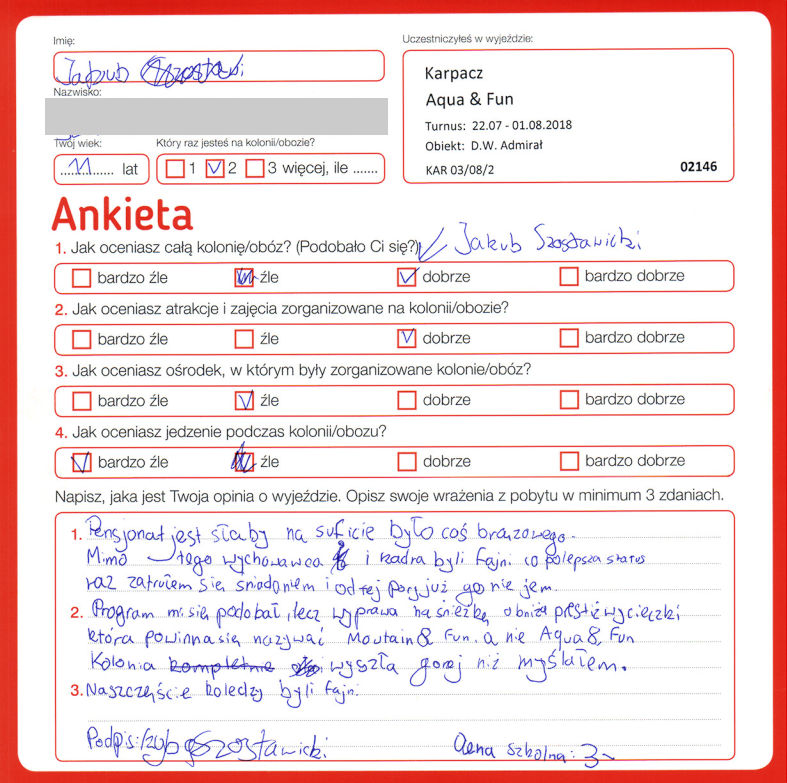 Imię:
Uczestniczyłeś w wyjeździe:
Jakub
Karpacz
Nazwisko:
Aqua & Fun
Turnus: 22.07 - 01.08.2018
Twój wiek: Który raz jesteś na kolonii/obozie?
Obiekt: D.W. Admirał
11 lat 1 2 3 więcej, ile .......
KAR 03/08/2 02146
Ankieta
Jakub Szostawicki
1. Jak oceniasz całą kolonię/obóz? (Podobało Ci się?)
bardzo źle źle dobrze bardzo dobrze
2. Jak oceniasz atrakcje i zajęcia zorganizowane na kolonii/obozie?
bardzo źle źle dobrze bardzo dobrze
3. Jak oceniasz ośrodek, w którym były zorganizowane kolonie/obóz?
bardzo źle źle dobrze bardzo dobrze
4. Jak oceniasz jedzenie podczas kolonii/obozu?
bardzo źle źle dobrze bardzo dobrze
Napisz, jaka jest Twoja opinia o wyjeździe. Opisz swoje wrażenia z pobytu w minimum 3 zdaniach.
1. Pensjonat jest słaby na suficie było coś brązowego.
Mimo tego wychowawca i kadra byli fajni co polepsza status
raz zatrułem się śniadaniem i od tej pory już go nie jem.
2. Program mi się podobał, lecz wyprawa na śnieżkę obniża prestiż wycieczki
która powinna się nazywać Moutain & Fun. a nie Aqua & Fun
Kolonia kompletnie wyszła gorzej niż myślałem.
3. Naszczęście koledzy byli fajni.
Podpis: Szostawicki Ocena szkolna: 3-